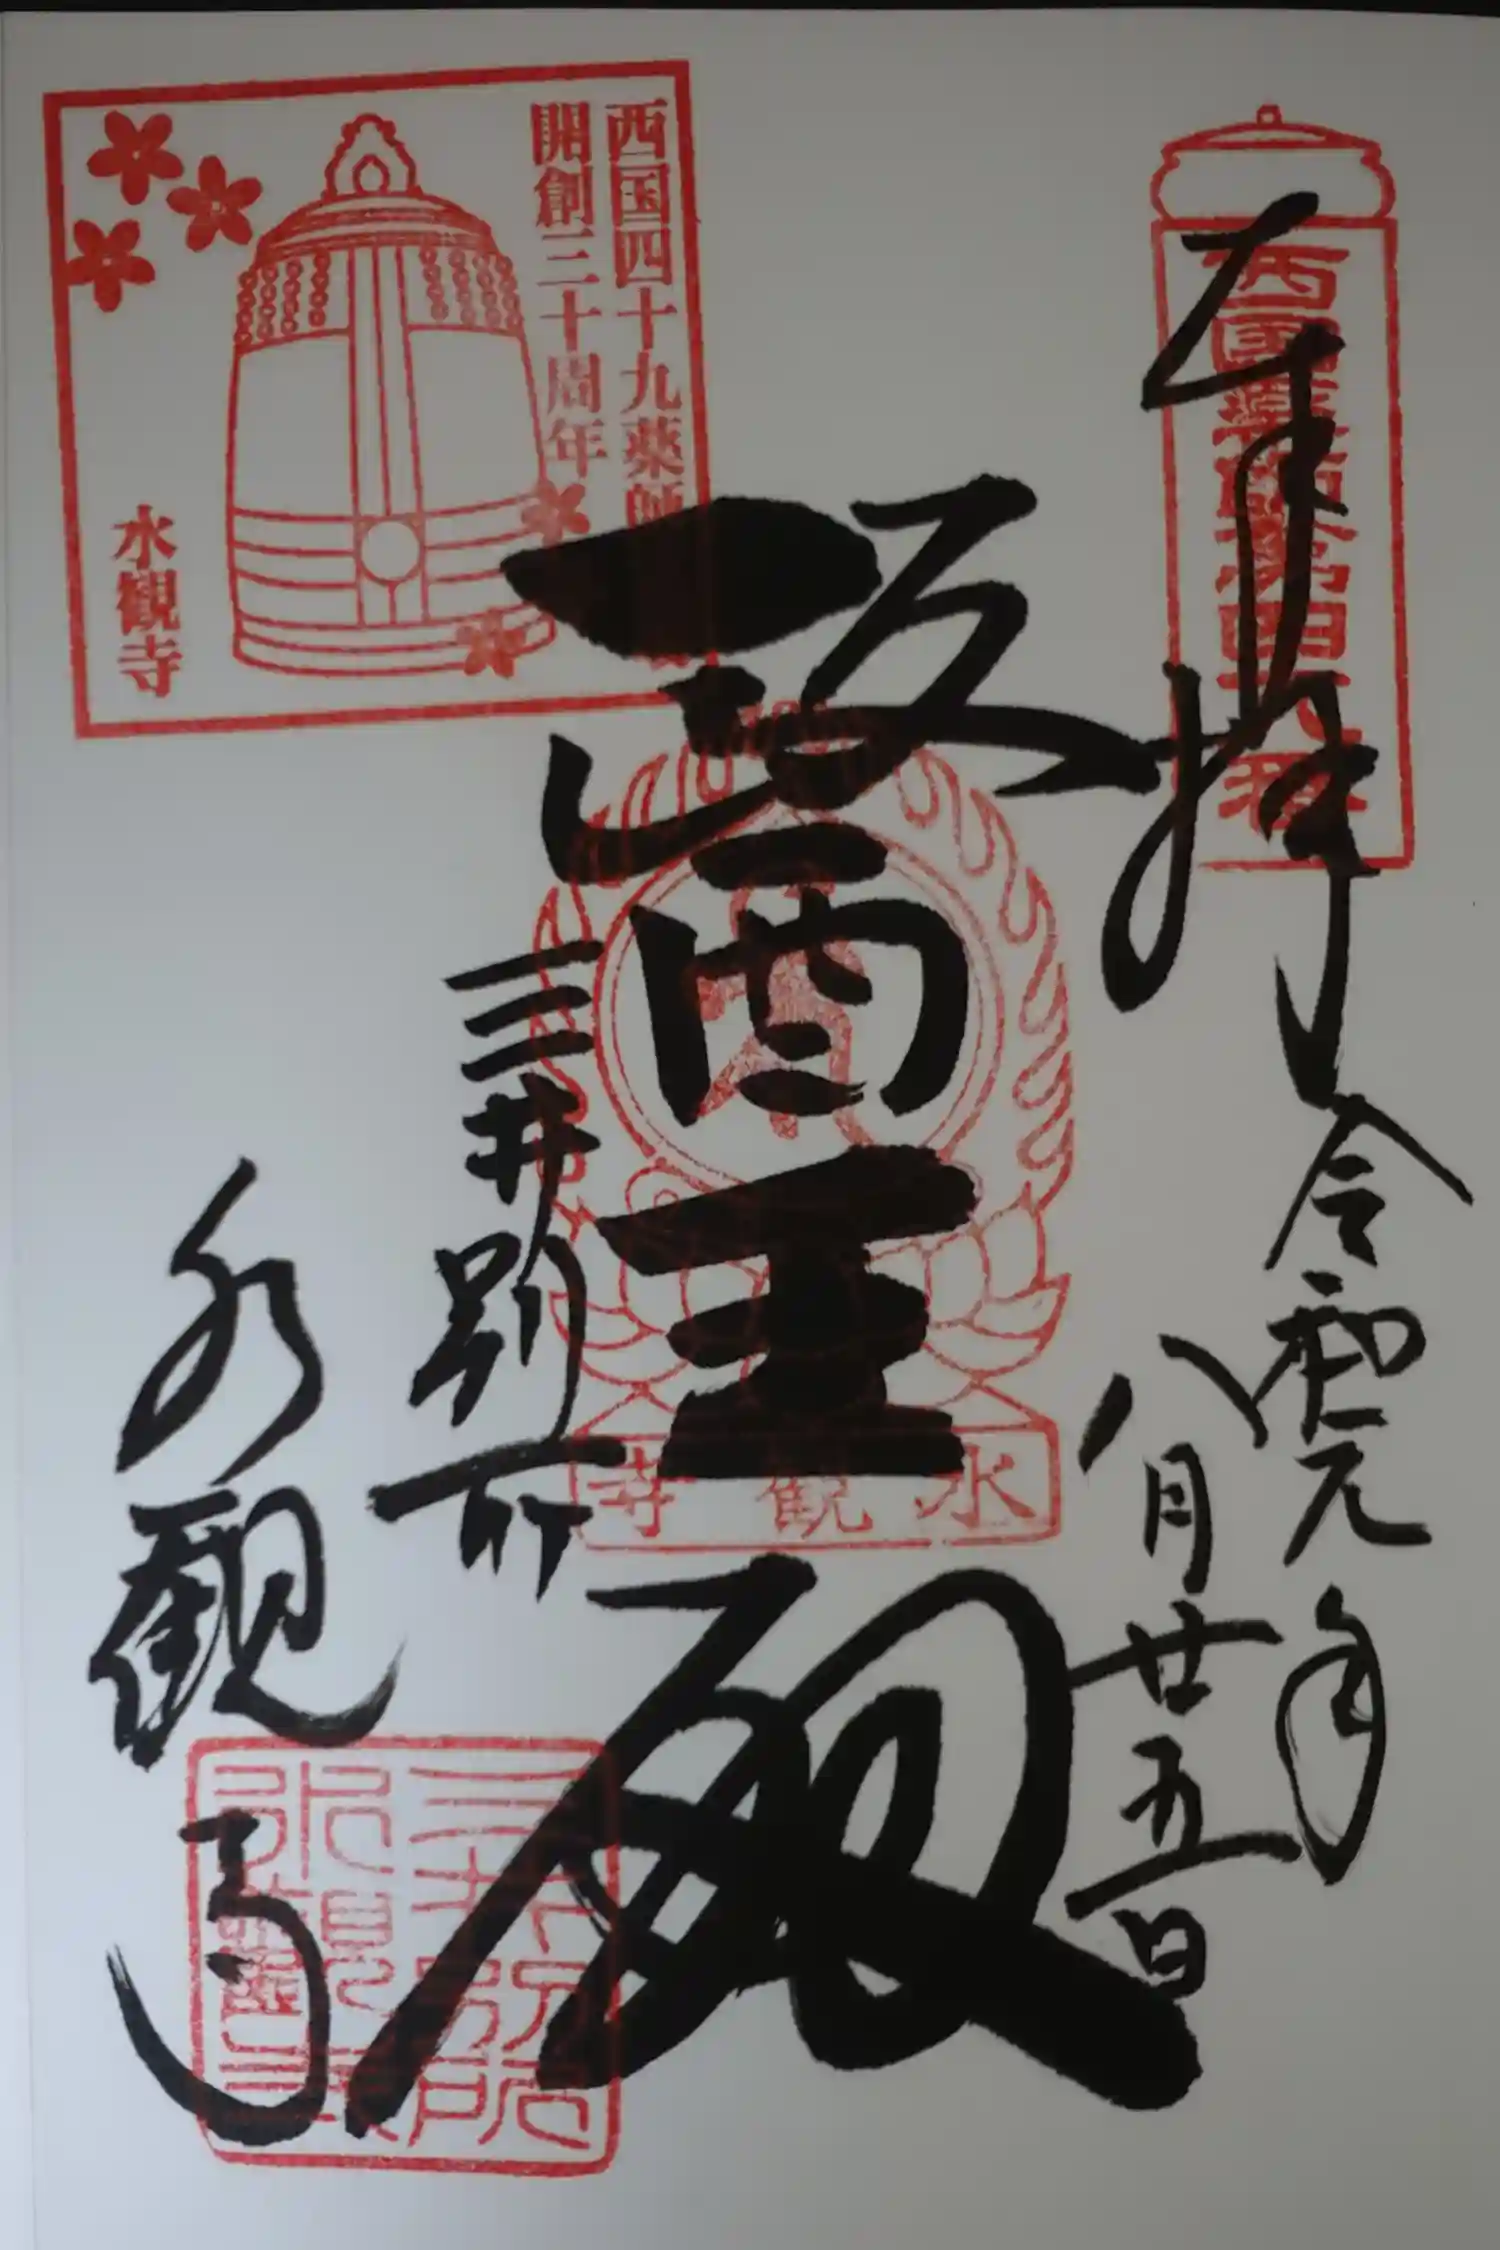 奉拝
令和元年
八月廿五日
西国薬師第四十八番
醫王殿
水観寺
三井別所
水観寺
西国四十九薬師
開創三十周年
水観寺
三井別所
水観寺